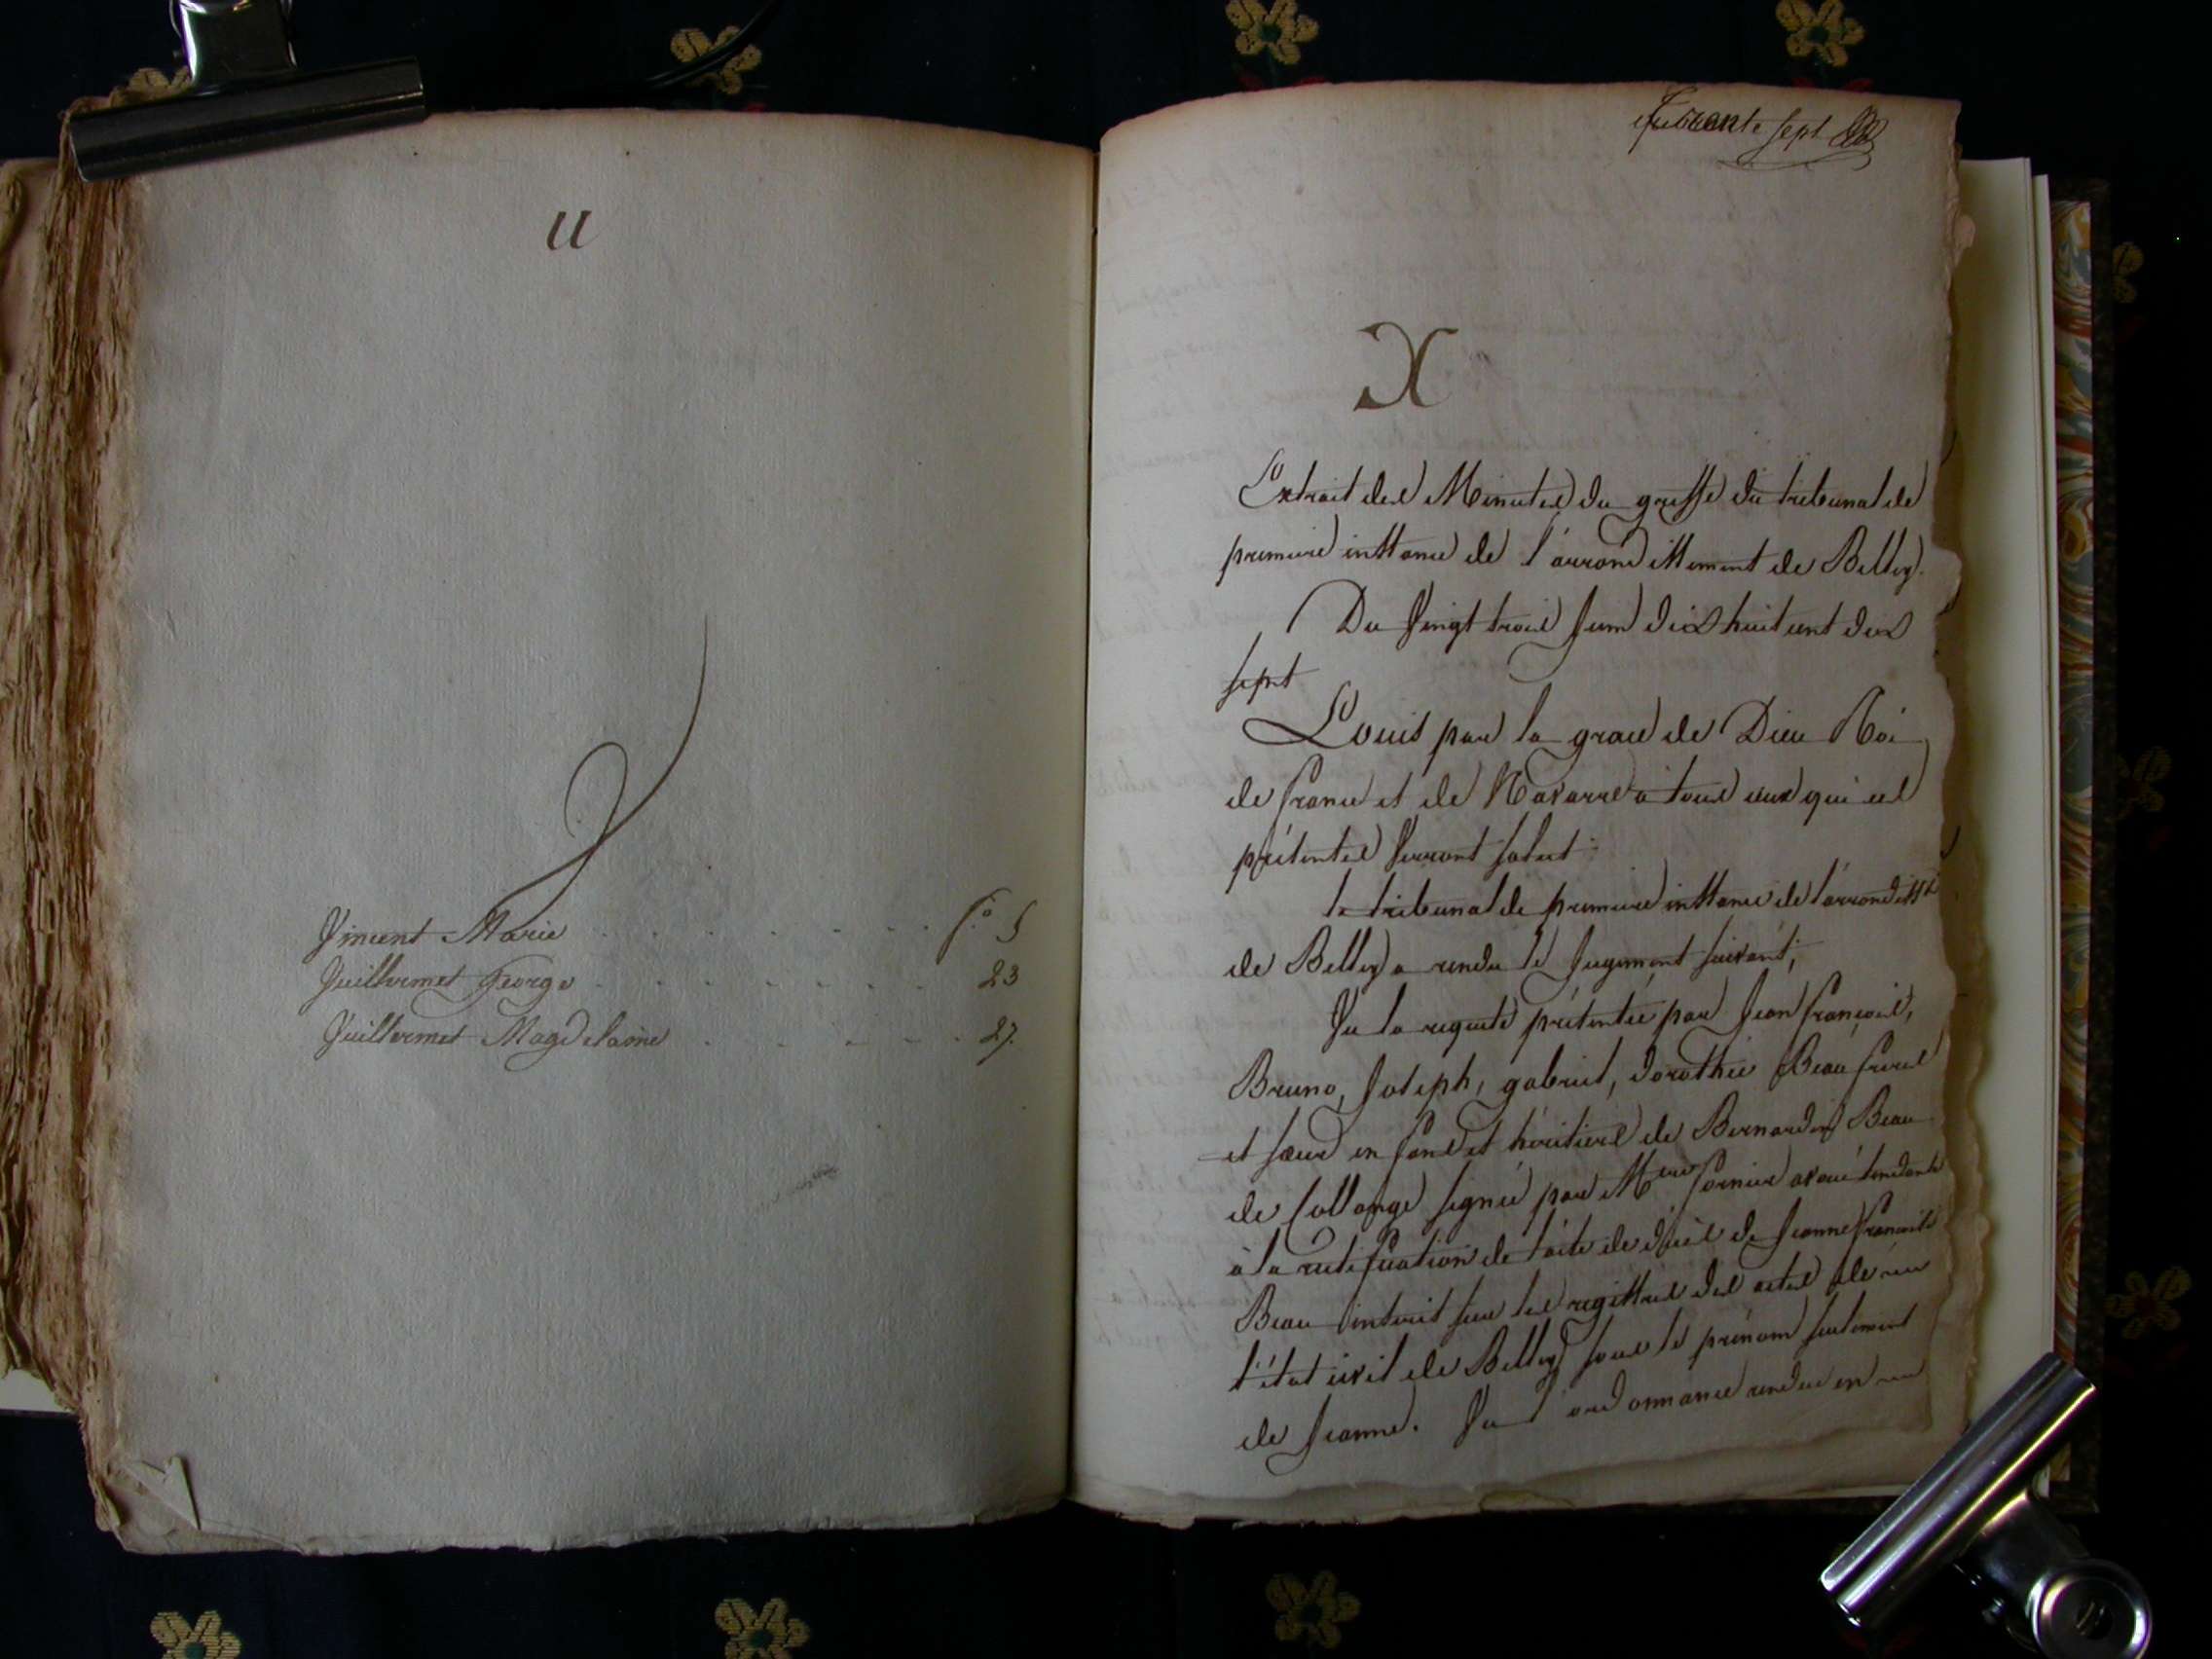 U
Vincent Marie . . . . . . . . f.º 5
Vuillermet George . . . . . . . 23
Vuillermet Magdelaine . . . . . . 27.
quarante sept
X
Extrait des Minutes du greffe du tribunal de
premiere instance de l'arrondissement de Belley.
Du Vingt trois Juin dix huit cent dix
sept
Louis par la grace de Dieu Roi
de france et de Navarre a tous ceux qui ces
présentes Verront salut:
le tribunal de premiere instance de l'arrondisst
de Belley a rendu le Jugement suivant;
Vu la requete présentée par Jean françois,
Bruno, Joseph, gabriel, dorothée Beau freres
et sœur enfans et héritiers de Bernardin Beau
de Collonge signée par Mtre fornier avoué tendante
à la rectification de l'acte de décès de Jeanne françoise
Beau inscrit sur les registres des actes de
l'état civil de Belley sous le prénom seulement
de Jeanne. Vu l'ordonnance rendue en